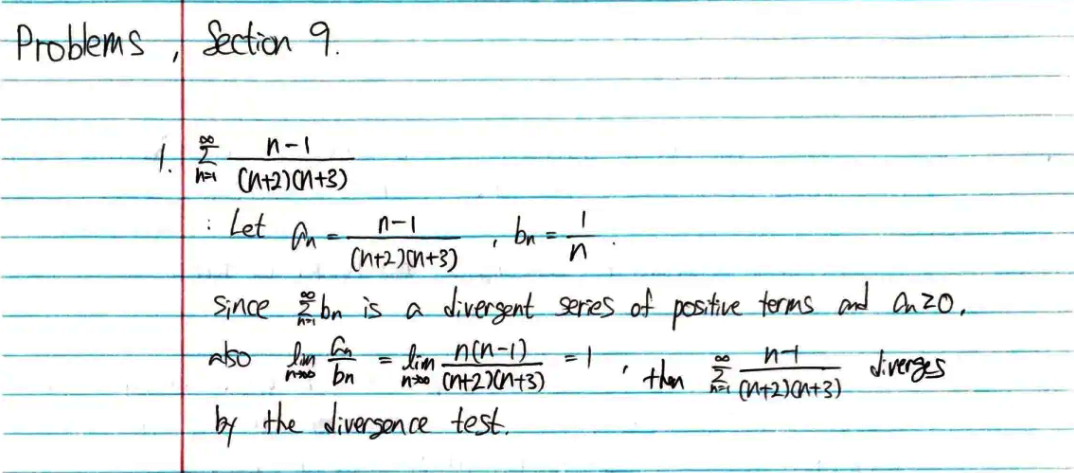 Problems, Section 9.
1. ∞ Σ n=1 (n-1)/((n+2)(n+3))
: Let aₙ = (n-1)/((n+2)(n+3)), bₙ = 1/n.
Since ∞ Σ n=1 bₙ is a divergent series of positive terms and aₙ ≥ 0,
also lim n→∞ aₙ/bₙ = lim n→∞ n(n-1)/((n+2)(n+3)) = 1, then ∞ Σ n=1 (n-1)/((n+2)(n+3)) diverges
by the divergence test.